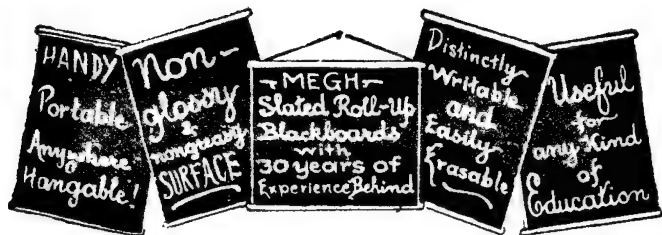 HANDY
Portable
Anywhere
Hangable!
Non-
glossy
&
nongreasy
SURFACE
-MEGH-
Slated Roll-Up
Blackboards
with
30 years of
Experience Behind
Distinctly
Writable
and
Easily
Erasable
Useful
for
any Kind
of
Education